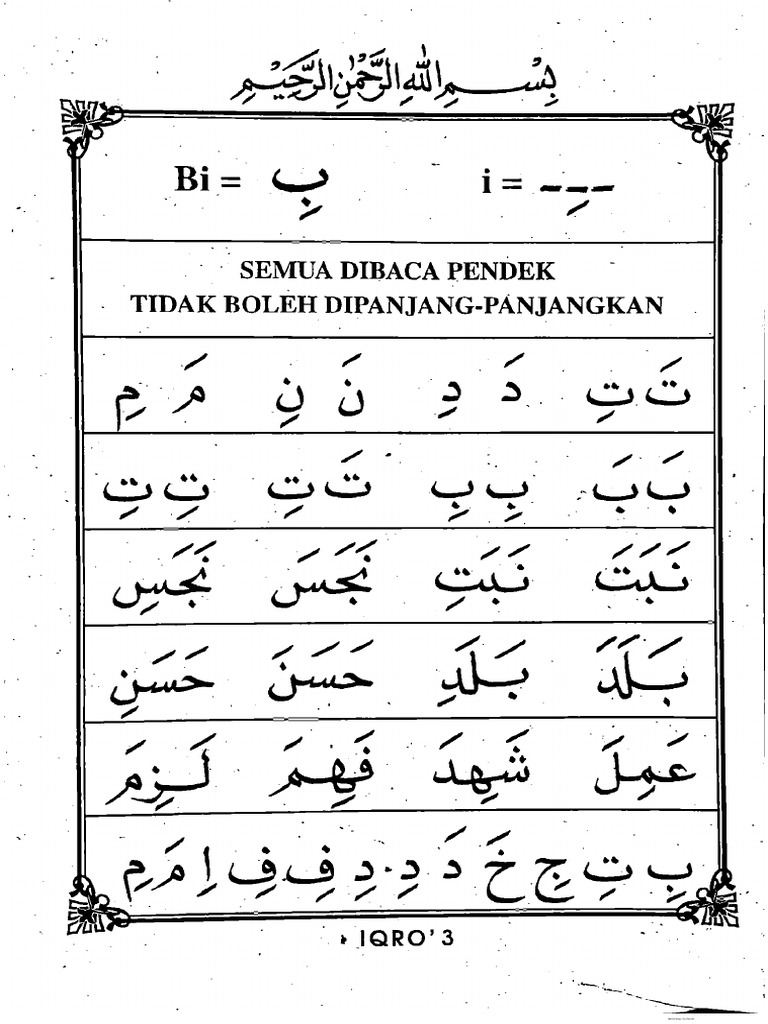 بِسْمِ اللهِ الرَّحْمٰنِ الرَّحِيْمِ
Bi = بِ i = ـِ
SEMUA DIBACA PENDEK
TIDAK BOLEH DIPANJANG-PANJANGKAN
تَ تِ دَ دِ نَ نِ مَ مِ
بَ بَ بِ بِ تَ تِ تِ تِ
نَبَتَ نَبَتِ نَجَسَ نَجَسِ
بَلَدَ بَلَدِ حَسَنَ حَسَنِ
عَمِلَ شَهِدَ فَهِمَ لَزِمَ
بِ تِ جِ خَ دَ دِ . دِ فِ فِ اِ مَ مِ
IQRO' 3